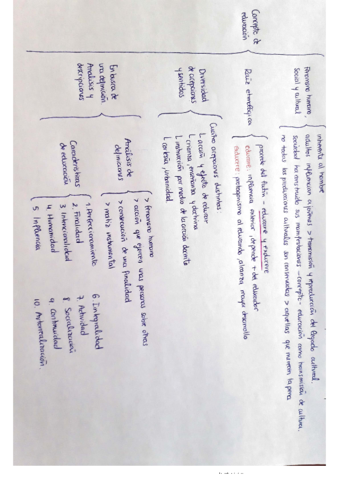 Concepto de
educación
Fenómeno humano
social y cultural
inherente al hombre
adultos influencian a jóvenes > transmisión y reproducción del legado cultural
sociedad ha construido sus manifestaciones - concepto - educación como transmisión de cultura.
no todas las producciones culturales son enseñadas > aquellas que merecen la pena
Raíz etimológica
procede del latín - educare y exducere
educare influencia exterior, depende + del educador
exducere protagonismo al educando, alcanza mayor desarrollo
Diversidad
de acepciones
y sentidos
Cuatro acepciones distintas
L acción y efecto de educar
L crianza, enseñanza y doctrina
L instrucción por medio de la acción docente
L cortesía, urbanidad
En busca de
una definición
Análisis y
descripciones
Análisis de
definiciones
> fenómeno humano
> acción que ejerce una persona sobre otras
> consecución de una finalidad
> matiz instrumental
Características
de educación
1. Perfeccionamiento
2. Finalidad
3. Intencionalidad
4. Humanidad
5. Influencia
6. Integralidad
7. Actividad
8. Socialización
9. Continuidad
10. Autorrealización